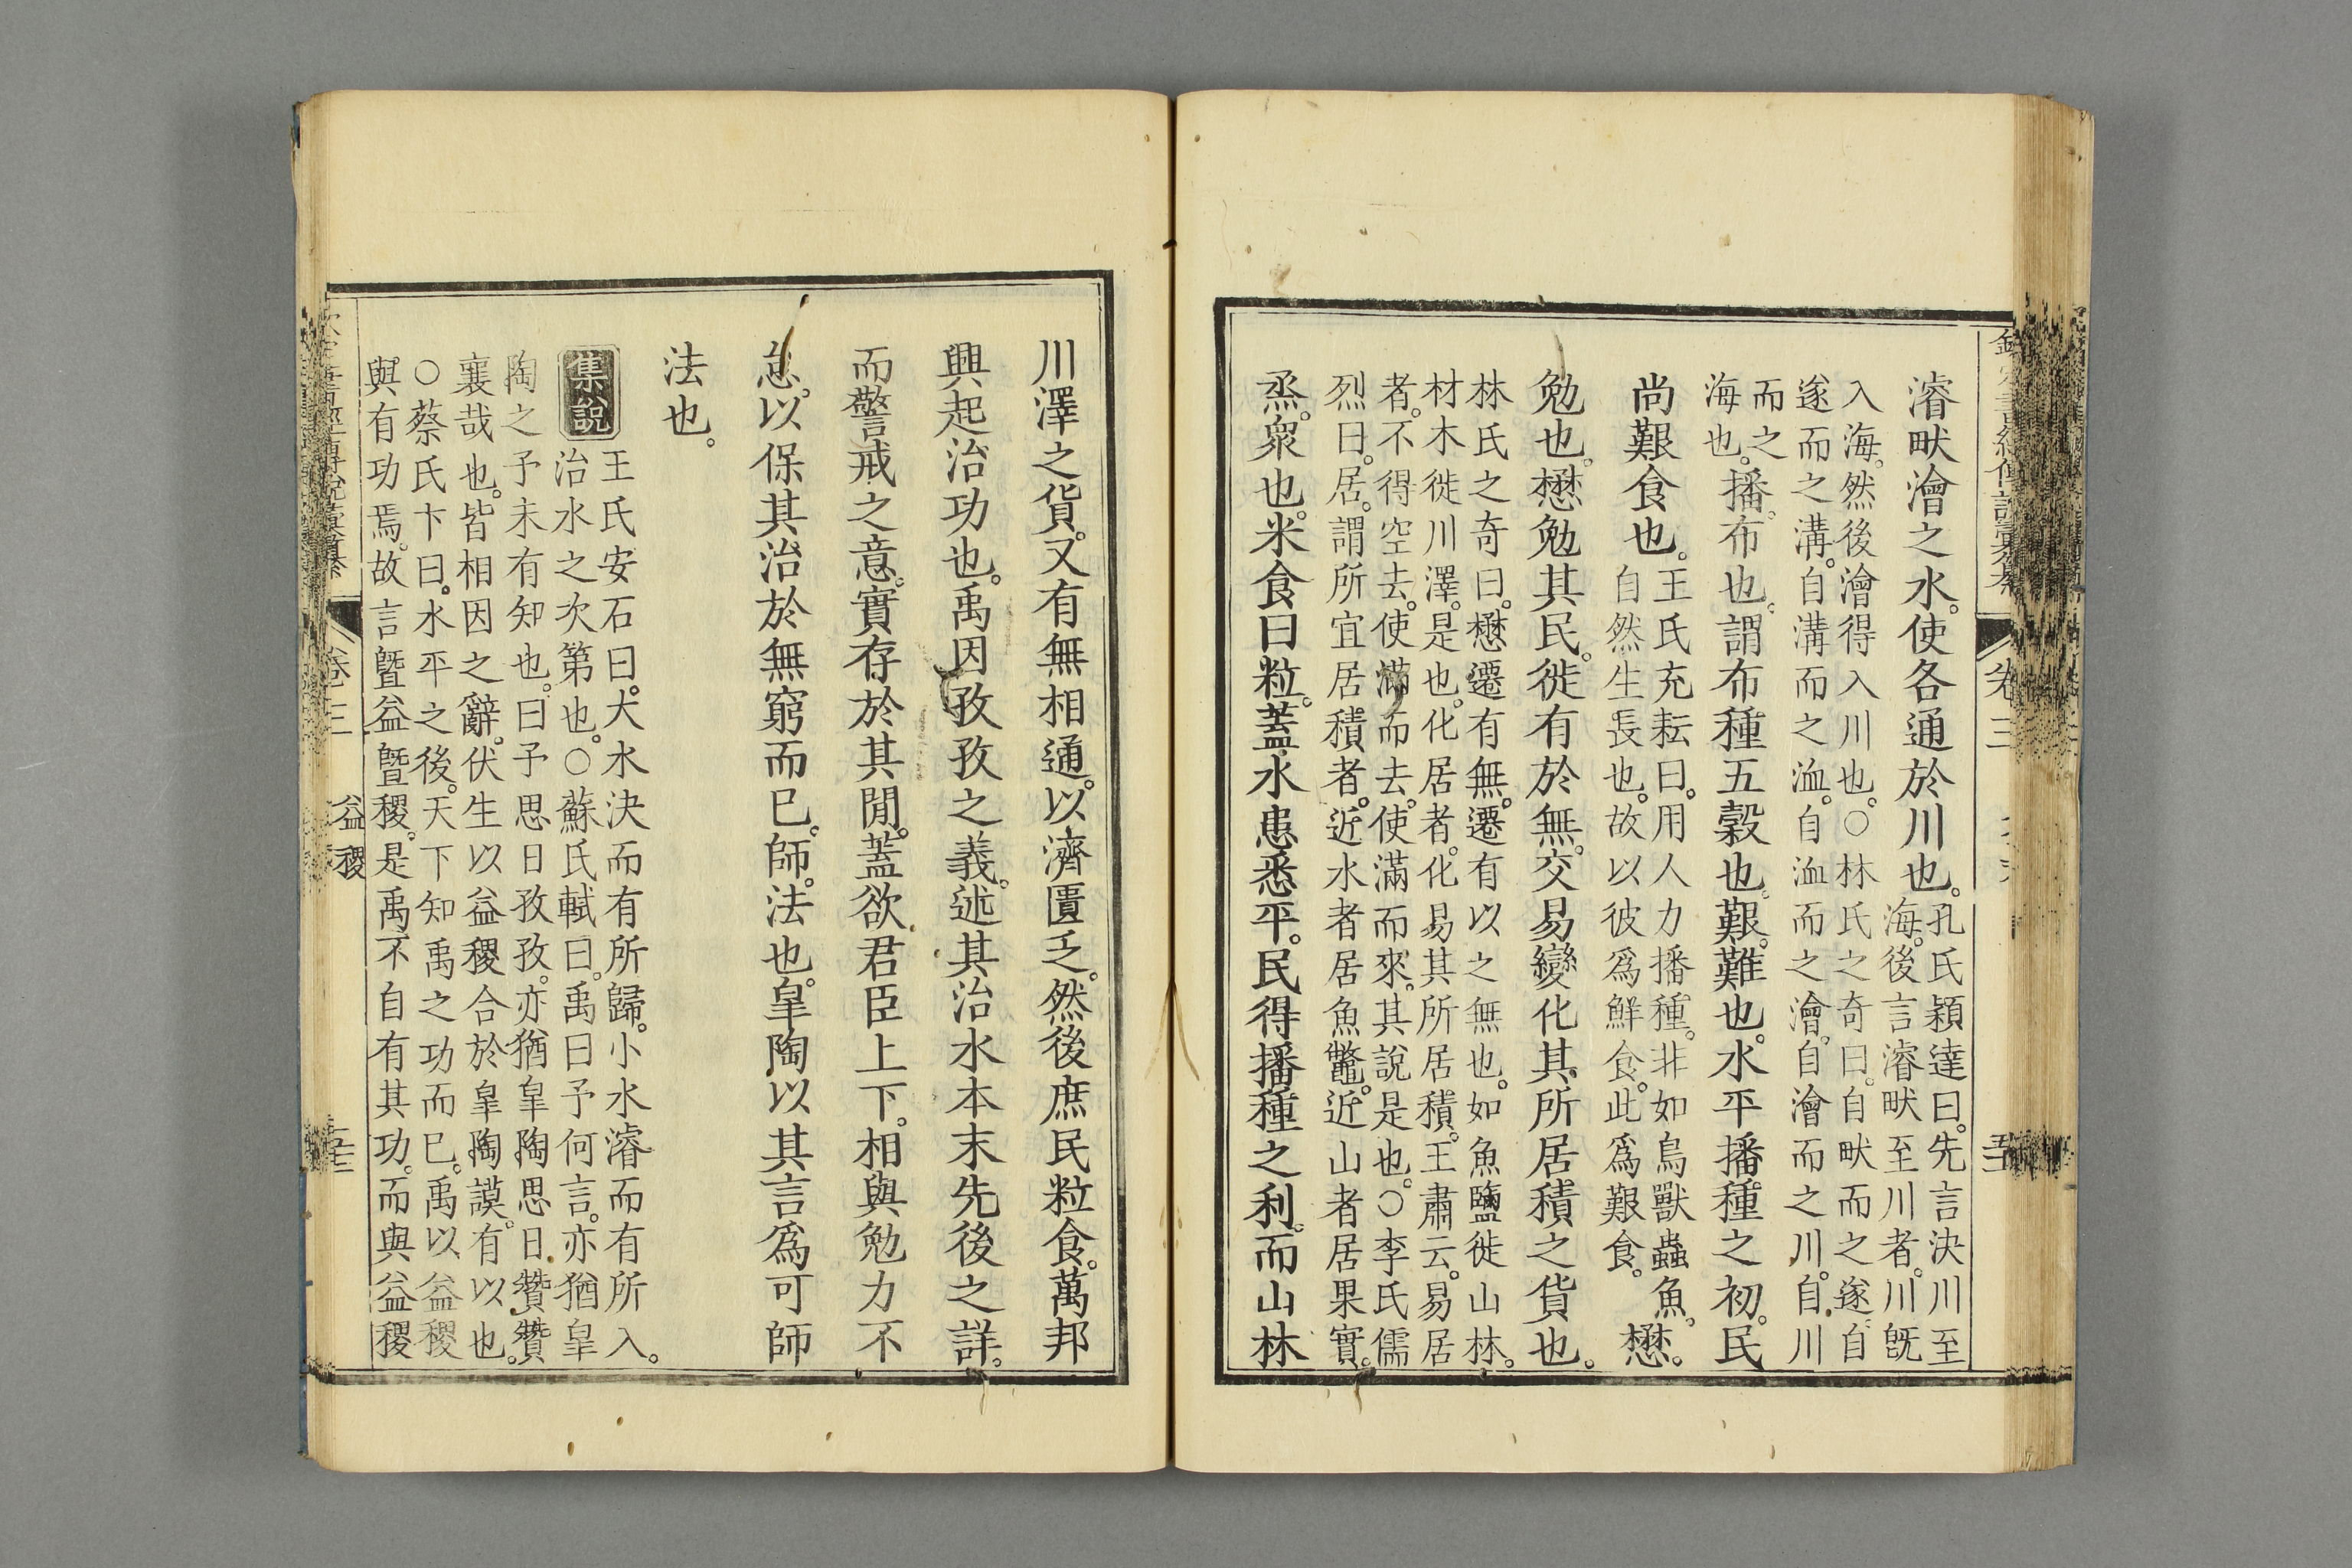 濬畎澮之水。使各通於川也。孔氏穎達曰。先言決川至
海。後言濬畎至川者。川旣
入海。然後澮得入川也。○林氏之奇曰。自畎而之遂。自
遂而之溝。自溝而之洫。自洫而之澮。自澮而之川。自川
而之
海也。播。布也。謂布種五穀也。艱。難也。水平播種之初。民
尚艱食也。王氏充耘曰。用人力播種。非如鳥獸蟲魚。
自然生長也。故以彼爲鮮食。此爲艱食。懋。
勉也。懋勉其民。徙有於無。交易變化其所居積之貨也。
林氏之奇曰。懋遷有無。遷有以之無也。如魚鹽徙山林。
材木徙川澤。是也。化居者。化易其所居積。王肅云。易居
者。不得空去。使滿而去。使滿而來。其說是也。○李氏儒
烈曰。居。謂所宜居積者。近水者居魚鼈。近山者居果實。
烝。衆也。米食曰粒。蓋水患悉平。民得播種之利。而山林
卷三
川澤之貨。又有無相通。以濟匱乏。然後庶民粒食。萬邦
興起治功也。禹因孜孜之義。述其治水本末先後之詳。
而警戒之意。實存於其閒。蓋欲君臣上下。相與勉力不
怠。以保其治於無窮而已。師。法也。皐陶以其言爲可師
法也。
集說
王氏安石曰。大水決而有所歸。小水濬而有所入。
治水之次第也。○蘇氏軾曰。禹曰予何言。亦猶皐
陶之予未有知也。曰予思日孜孜。亦猶皐陶思日贊贊
襄哉也。皆相因之辭。伏生以益稷合於皐陶謨。有以也。
○蔡氏卞曰。水平之後。天下知禹之功而已。禹以益稷
與有功焉。故言曁益曁稷。是禹不自有其功。而與益稷
卷三
益稷